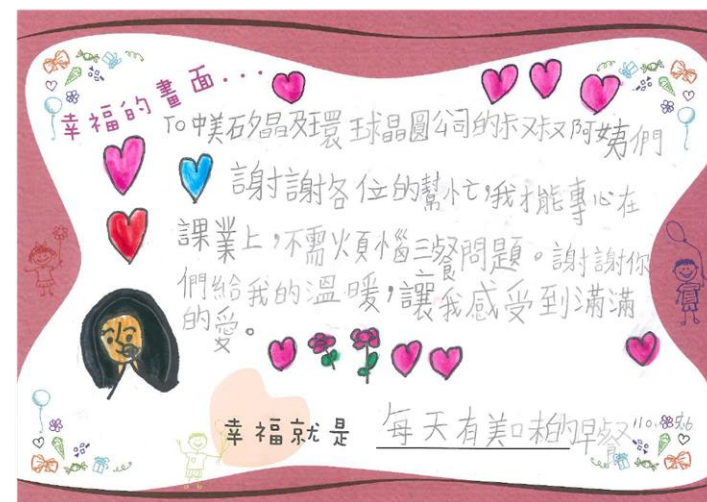 幸福的畫面...
To 中美矽晶及環球晶圓公司的叔叔阿姨們
謝謝各位的幫忙,我才能專心在
課業上,不需煩惱三餐問題。謝謝你
們給我的溫暖,讓我感受到滿滿
的愛。
幸福就是 每天有美味的早餐